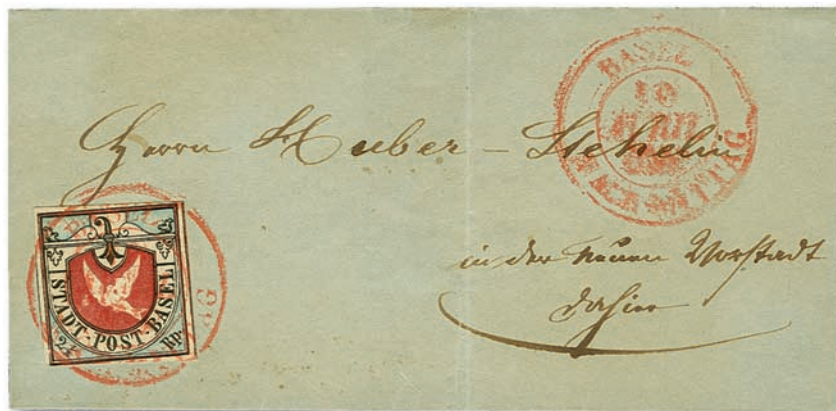 BASEL
10
APRIL
VORMITTAG
Herrn Huber - Stehelin
in der neuen Vorstadt
dahier
BASEL
STADT-POST-BASEL
2½ Rp.